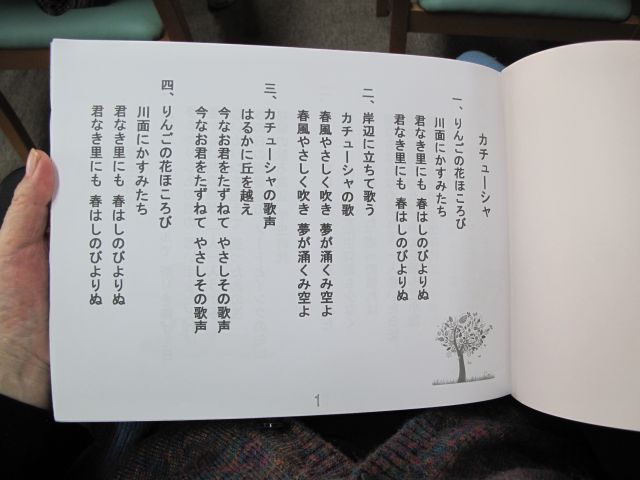 カチューシャ
一、りんごの花ほころび
川面にかすみたち
君なき里にも 春はしのびよりぬ
君なき里にも 春はしのびよりぬ
二、岸辺に立ちて歌う
カチューシャの歌
春風やさしく吹き 夢が涌くみ空よ
春風やさしく吹き 夢が涌くみ空よ
三、カチューシャの歌声
はるかに丘を越え
今なお君をたずねて やさしその歌声
今なお君をたずねて やさしその歌声
四、りんごの花ほころび
川面にかすみたち
君なき里にも 春はしのびよりぬ
君なき里にも 春はしのびよりぬ
1